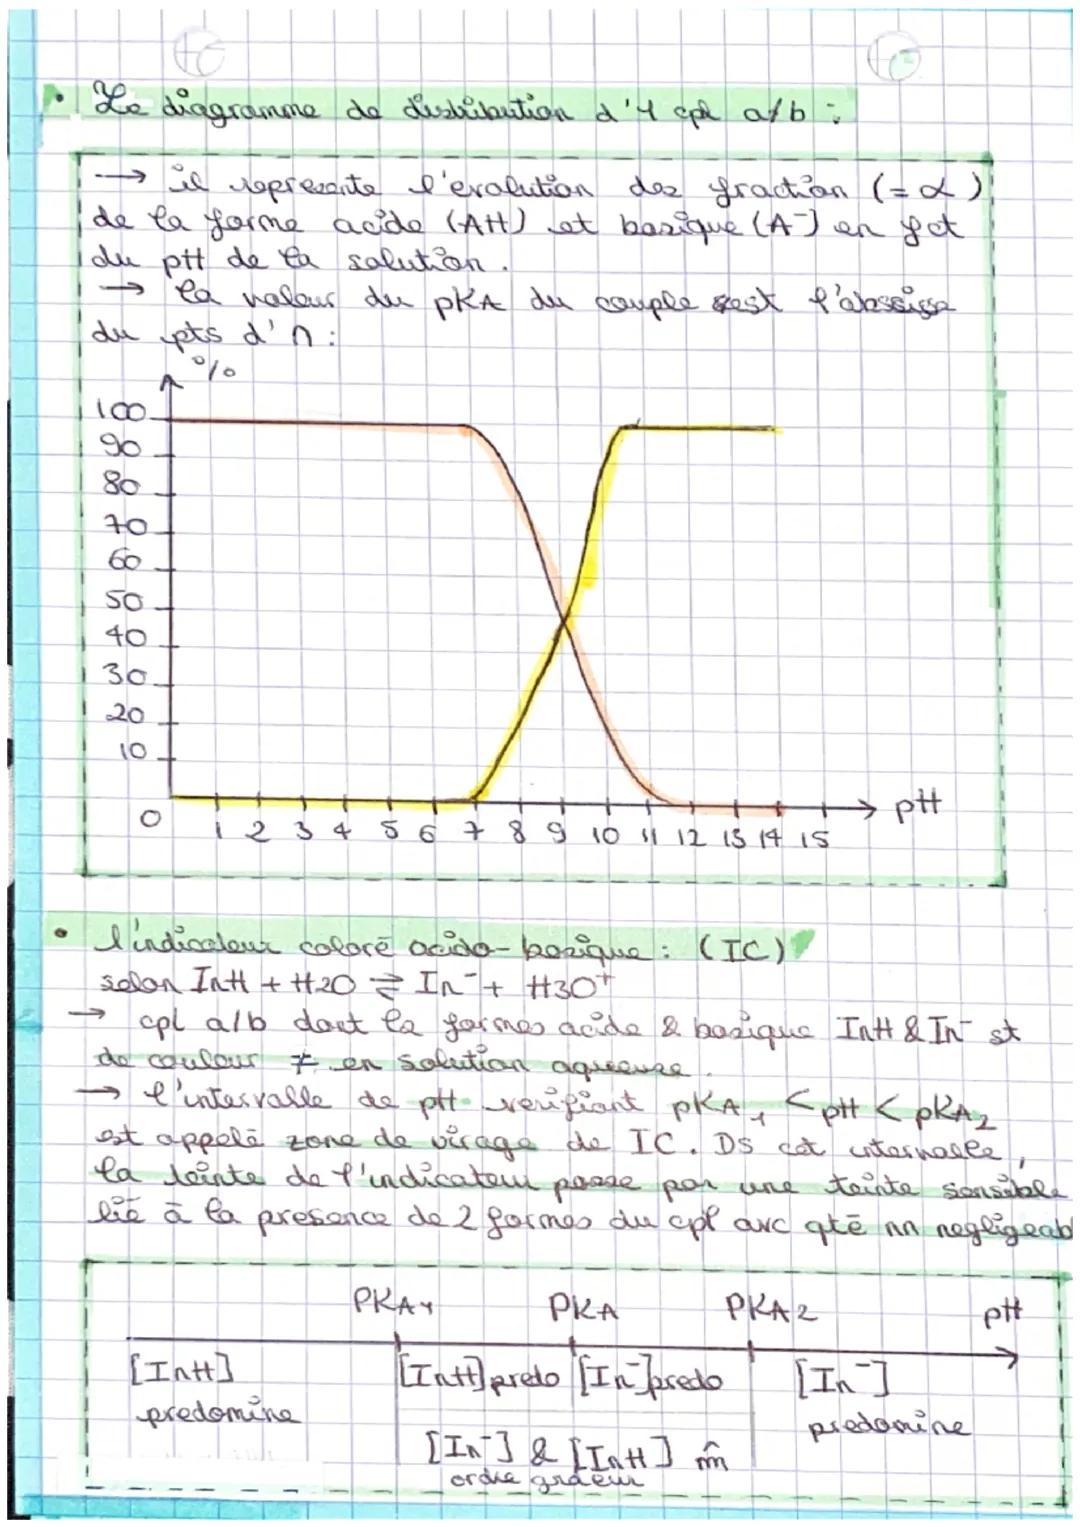 • Le diagramme de distribution d'1 cpl a/b :
→ il represente l'évolution des fraction (= α)
de la forme acide (AH) et basique (A⁻) en fct
du pH de la solution.
→ la valeur du pKA du couple est l'abscisse
du pts d'∩ :
%
100
90
80
70
60
50
40
30
20
10
0 1 2 3 4 5 6 7 8 9 10 11 12 13 14 15 pH
• l'indicateur coloré acido-basique : (IC)
selon InH + H2O ⇌ In⁻ + H3O⁺
→ cpl a/b dont la formes acide & basique InH & In⁻ st
de couleur ≠ en solution aqueuse.
→ l'intervalle de pH verifiant pKA1 < pH < pKA2
est appelé zone de virage de IC. Ds cet intervalle,
la teinte de l'indicateur passe par une teinte sensible
lié à la presence de 2 formes du cpl avc qté nn negligeab
PKA1 PKA PKA2 pH
[InH] [InH] predo [In⁻] predo [In⁻]
predomine predomine
[In⁻] & [InH] m̂
ordre grdeur